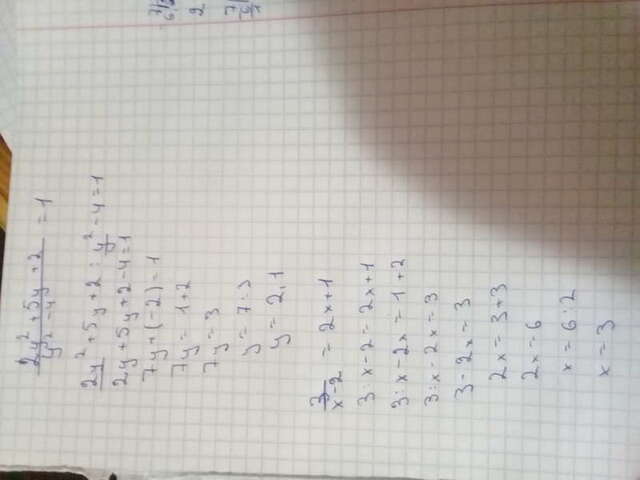 2y² + 5y + 2 / y² - 4 = 1
2y² + 5y + 2 : y² - 4 = 1
2y + 5y + 2 - 4 = 1
7y + (-2) = 1
7y = 1 + 2
7y = 3
y = 7 : 3
y = 2,1
3 / x - 2 = 2x + 1
3 : x - 2 = 2x + 1
3 : x - 2x = 1 + 2
3 : x - 2x = 3
3 - 2x = 3
2x = 3 + 3
2x = 6
x = 6 : 2
x = 3